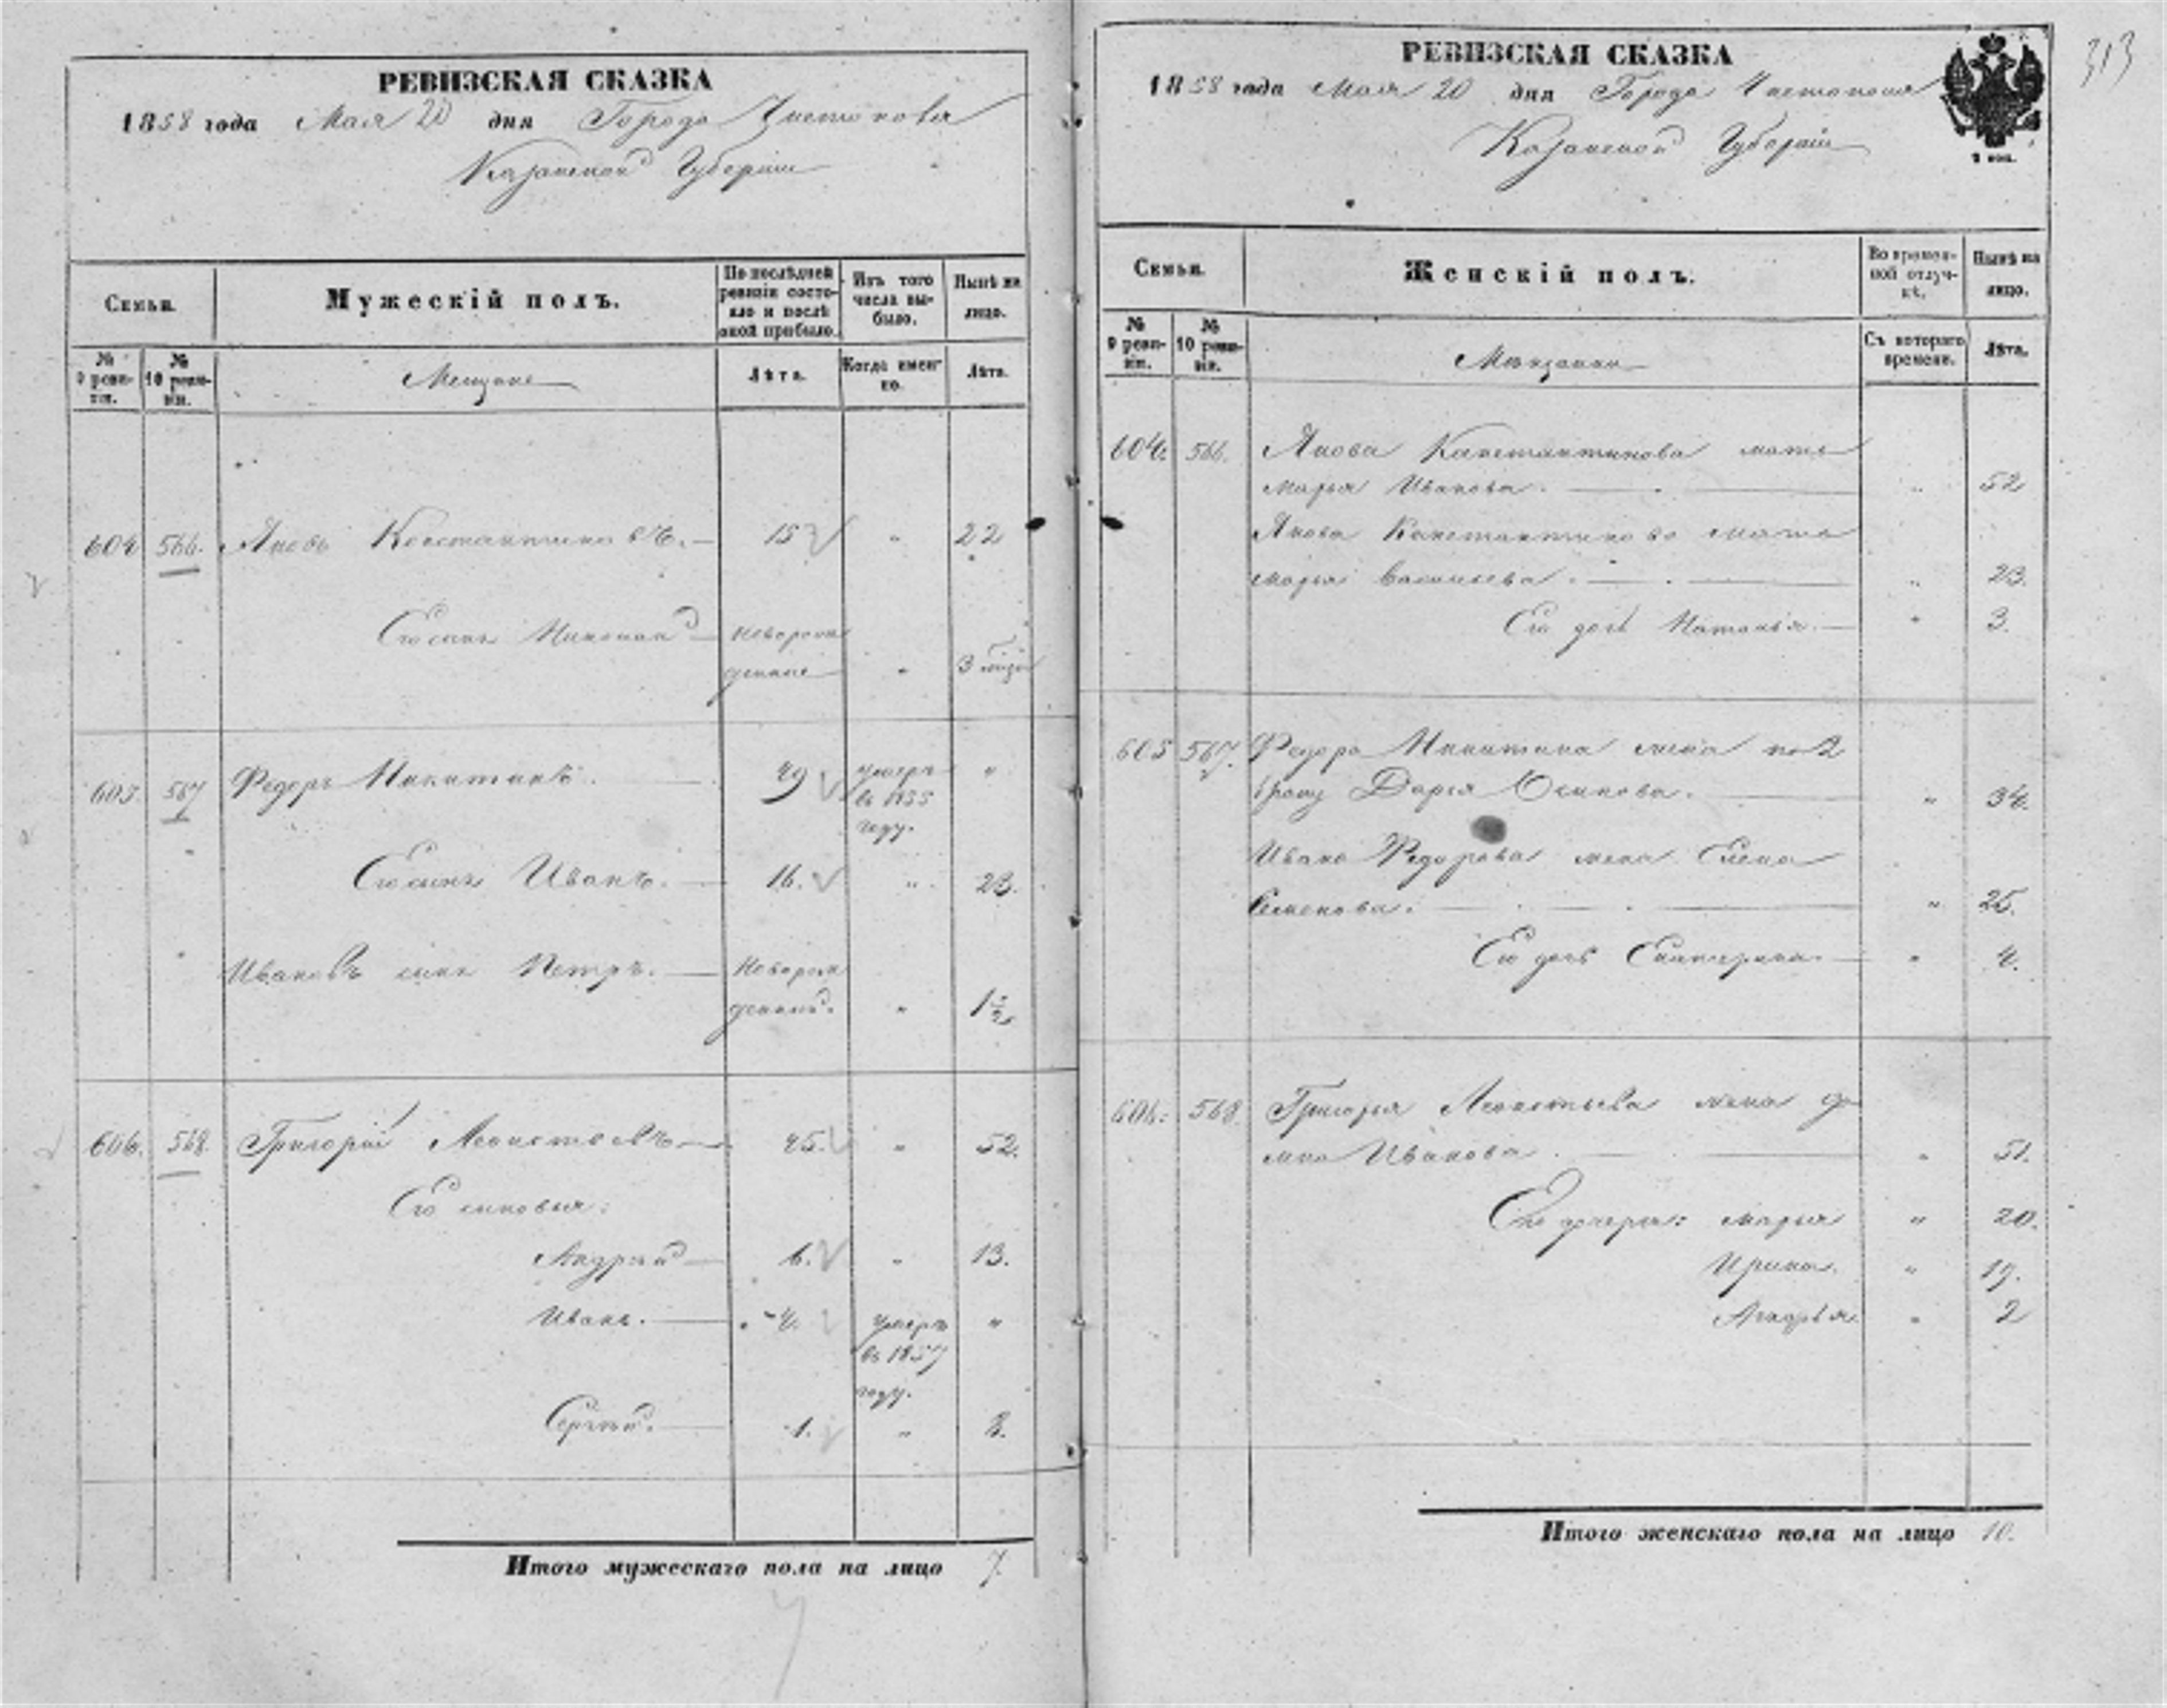 РЕВИЗСКАЯ СКАЗКА
1858 года Мая 20 дня Города Чистополя
Казанской Губернiи
Семьи.
Мужескiй полъ.
По послѣдней ревизiи состо-
яло и послѣ оной прибыло.
Изъ того числа вы-
было.
Нынѣ на лицо.
№ 9 реви-
зiи.
№ 10 реви-
зiи.
Мещане
Лѣта.
Когда имен-
но.
Лѣта.
604 566. Яковъ Константиновъ. 15 " 22
Его сынъ Николай новорож
денные " 3 мѣся
605. 567 Федоръ Никитинъ. 49 умеръ "
въ 1855
году.
Его сынъ Иванъ. 16. " 23.
Ивановъ сынъ Петръ. Новорож
денный. " 1½
606. 568. Григорiй Леонтьевъ 45. " 52.
Его сыновья:
Андрей 6. " 13.
Иванъ. 4. умеръ "
въ 1857
году.
Сергѣй. 1. " 8.
Итого мужескаго пола на лицо 7.
313
РЕВИЗСКАЯ СКАЗКА
1858 года Мая 20 дня Города Чистополя
Казанской Губернiи
Семьи.
Женскiй полъ.
Во времен-
ной отлуч-
кѣ.
Нынѣ на
лицо.
№ 9 реви-
зiи.
№ 10 реви-
зiи.
Мѣщанки
Съ котораго
времени.
Лѣта.
604. 566. Якова Канстантинова мать
Марья Иванова. " 52
Якова Канстантинова жена
Марья Васильева. " 23.
Его дочь Наталья. " 3.
605 567. Федора Никитина жена по 2
браку Дарья Осипова. " 34.
Ивана Федорова жена Елена
Семенова. " 25.
Его дочь Екатерина. " 4.
606. 568. Григорья Леонтьева жена До
мна Иванова. " 51.
Его дочери: Марья " 20.
Ирина. " 19.
" 2
Итого женскаго пола на лицо 10.